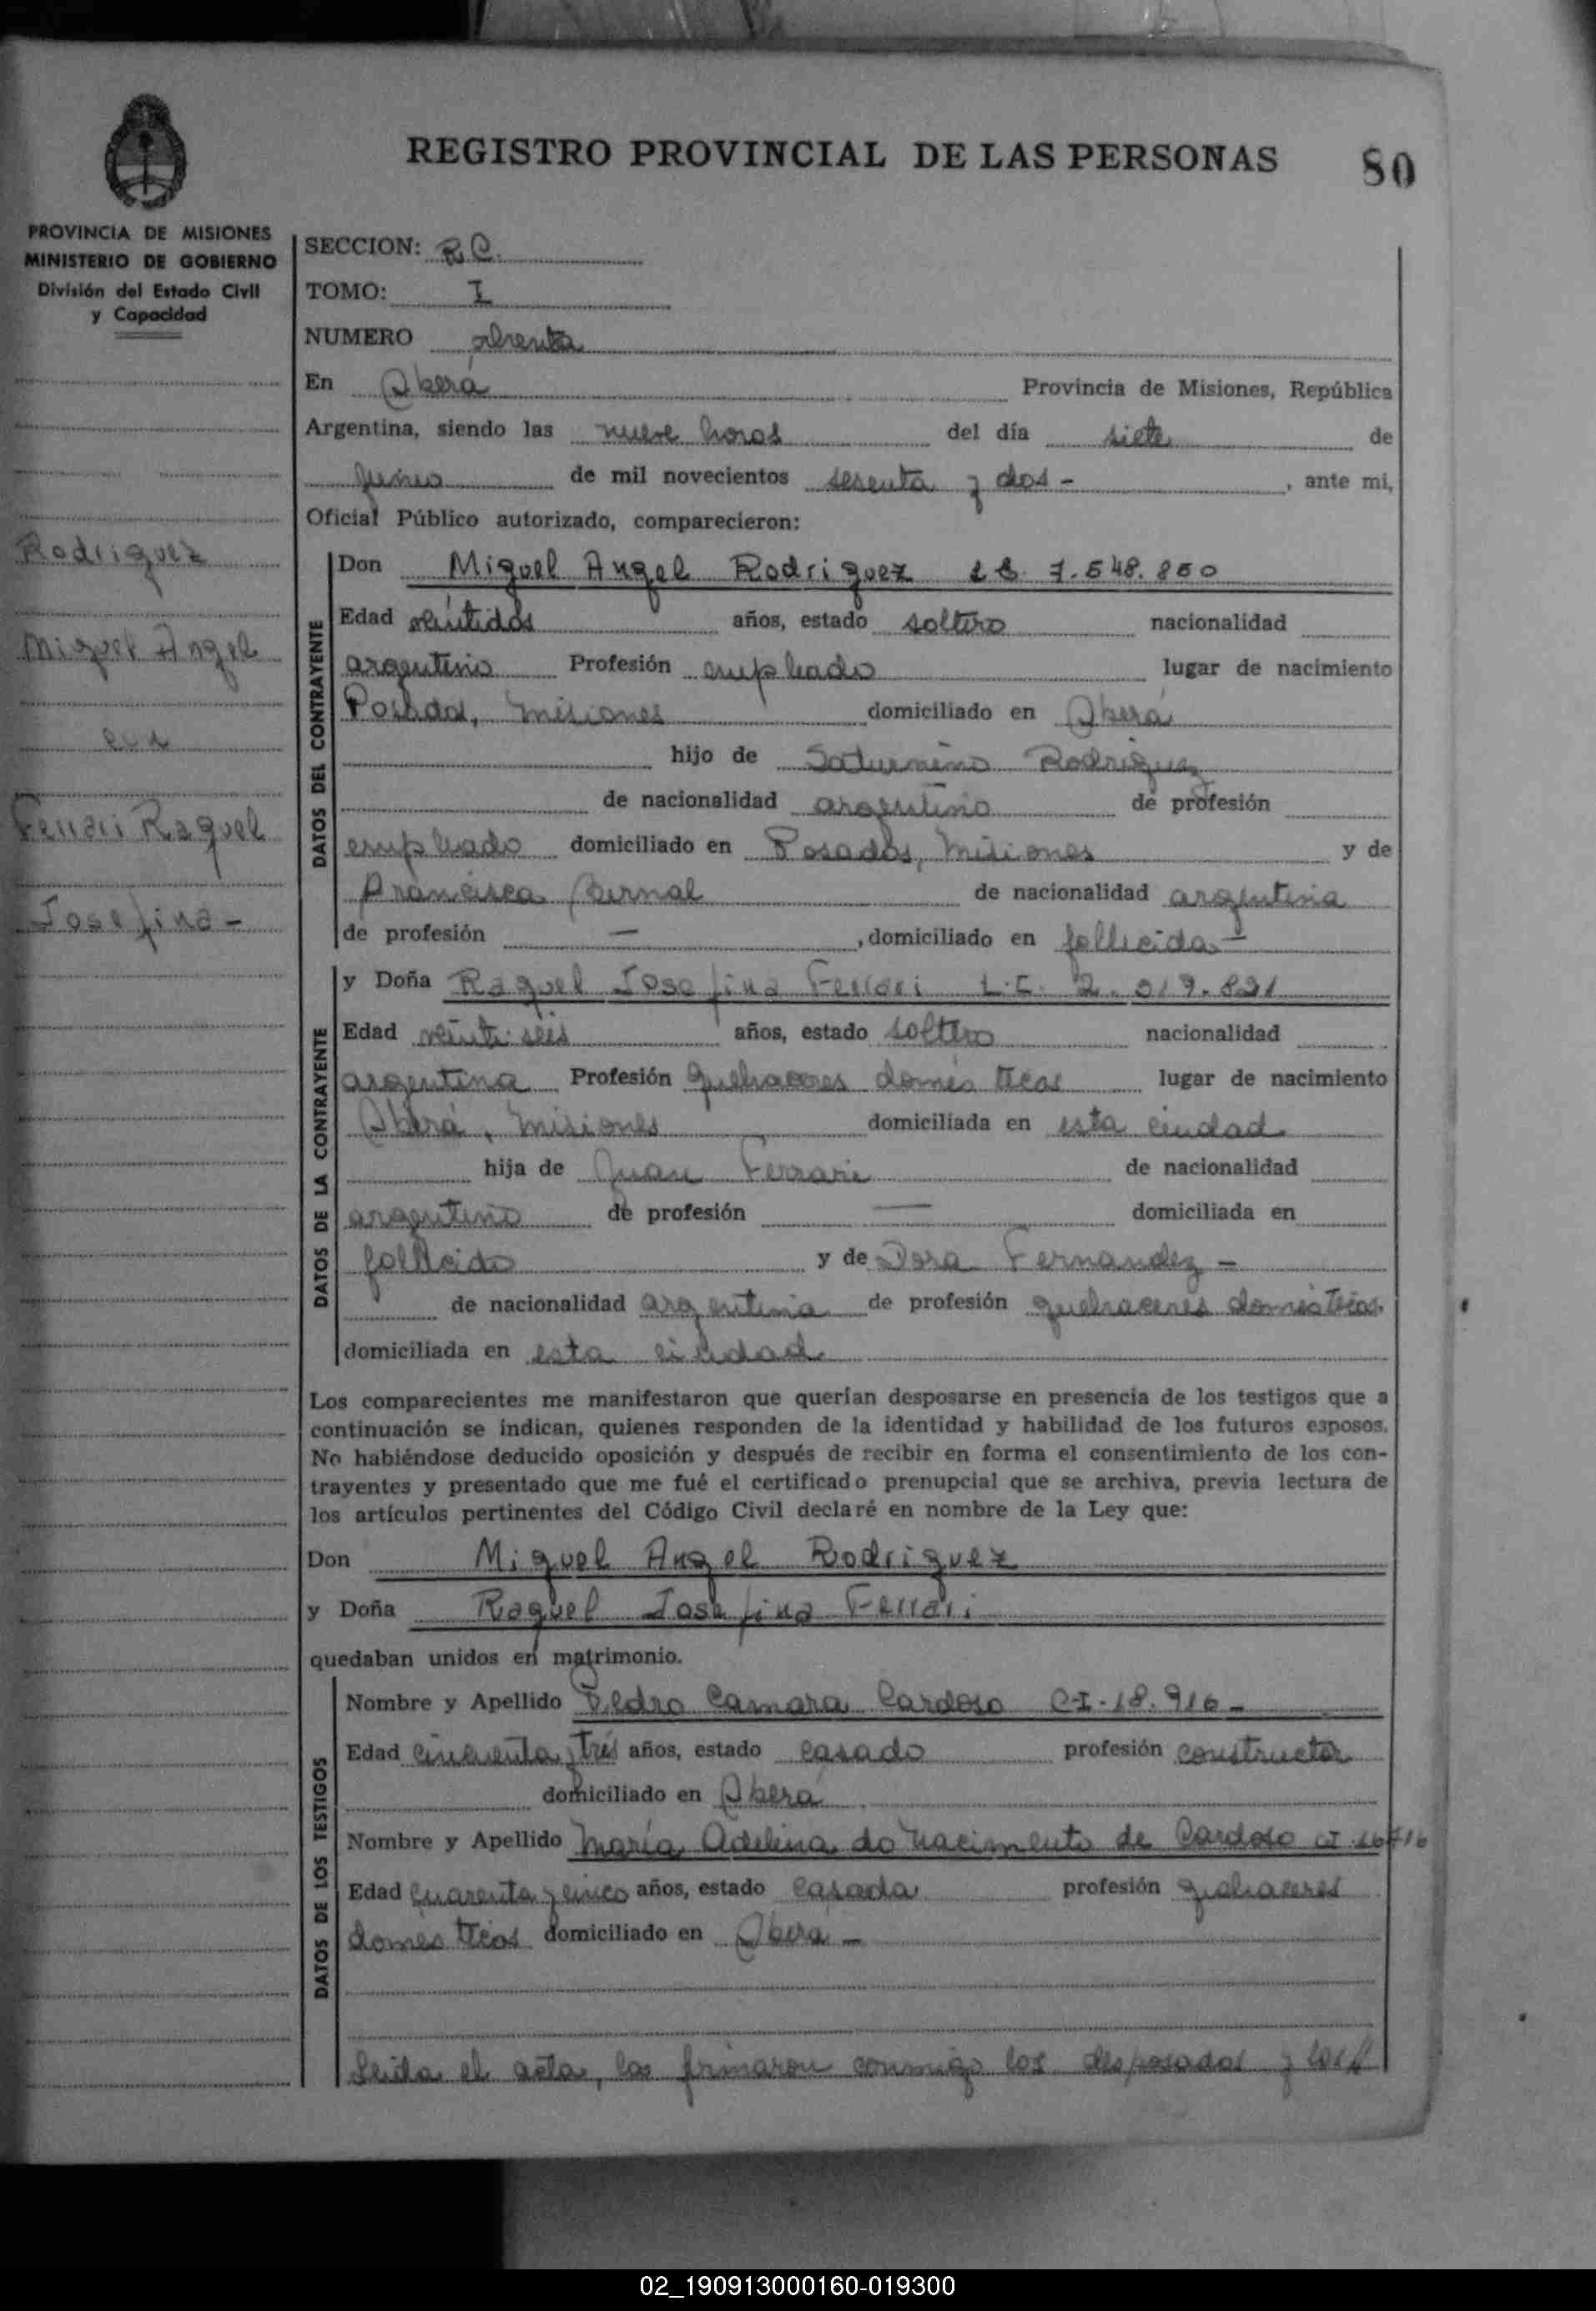 REGISTRO PROVINCIAL DE LAS PERSONAS 80
PROVINCIA DE MISIONES
MINISTERIO DE GOBIERNO
División del Estado Civil
y Capacidad
Rodriguez
Miguel Angel
con
Ferrari Raquel
Josefina -
SECCION: R.C.
TOMO: I
NUMERO ochenta
En Oberá Provincia de Misiones, República
Argentina, siendo las nueve horas del día siete de
junio de mil novecientos sesenta y dos - , ante mi,
Oficial Público autorizado, comparecieron:
DATOS DEL CONTRAYENTE
Don Miguel Angel Rodriguez 7.548.850
Edad veintidos años, estado soltero nacionalidad
argentino Profesión empleado lugar de nacimiento
Posadas, Misiones domiciliado en Oberá
hijo de Saturnino Rodriguez
de nacionalidad argentino de profesión
empleado domiciliado en Posadas, Misiones y de
Francisca Bernal de nacionalidad argentina
de profesión — , domiciliado en fallecida -
DATOS DE LA CONTRAYENTE
y Doña Raquel Josefina Ferrari L.C. 2.319.831
Edad veintiseis años, estado soltera nacionalidad
argentina Profesión quehaceres domésticos lugar de nacimiento
Oberá, Misiones domiciliada en esta ciudad
hija de Juan Ferrari de nacionalidad
argentino de profesión — domiciliada en
fallecido y de Dora Fernandez -
de nacionalidad argentina de profesión quehaceres domésticos
domiciliada en esta ciudad
Los comparecientes me manifestaron que querían desposarse en presencia de los testigos que a
continuación se indican, quienes responden de la identidad y habilidad de los futuros esposos.
No habiéndose deducido oposición y después de recibir en forma el consentimiento de los con-
trayentes y presentado que me fué el certificado prenupcial que se archiva, previa lectura de
los artículos pertinentes del Código Civil declaré en nombre de la Ley que:
Don Miguel Angel Rodriguez
y Doña Raquel Josefina Ferrari
quedaban unidos en matrimonio.
DATOS DE LOS TESTIGOS
Nombre y Apellido Pedro Camara Cardoso C.I. 18.916 -
Edad cincuenta y tres años, estado casado profesión constructor
domiciliado en Oberá
Nombre y Apellido María Adelina do Nacimento de Cardoso CI
Edad cuarenta y cinco años, estado casada profesión quehaceres
domésticos domiciliado en Oberá -
Leida el acta, la firmaron conmigo los desposados y los
02_190913000160-019300